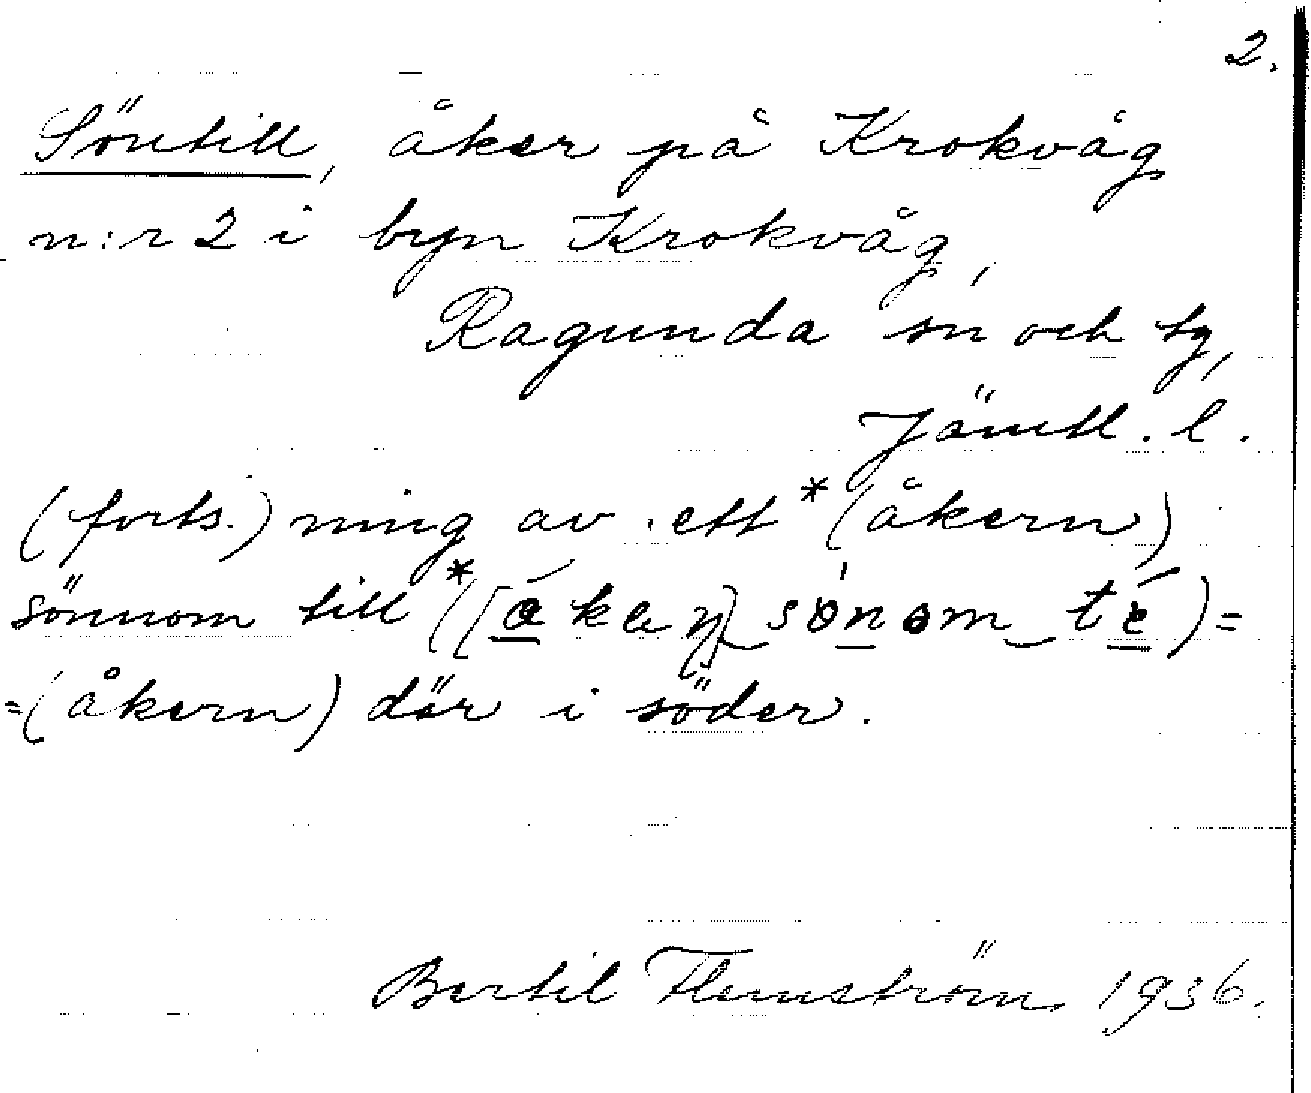 2.
Söntill, åker på Krokvåg
n:r 2 i byn Krokvåg,
Ragunda sn och tg,
Jämtl. l.
(forts.) ning av ett *(åkern)
sönnom till *([åken] sónom té) =
= (åkern) där i söder.
Bertil Flemström 1936.